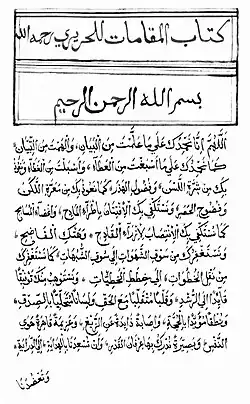 كتاب المقامات للحريري رحمه الله
بسم الله الرحمن الرحيم
اَللّٰهُمَّ إِنَّا نَحْمَدُكَ عَلَى مَا عَلَّمْتَ مِنَ الْبَيَانِ، وَأَلْهَمْتَ مِنَ التِّبْيَانِ،
كَمَا نَحْمَدُكَ عَلَى مَا أَسْبَغْتَ مِنَ الْعَطَاءِ، وَأَسْبَلْتَ مِنَ الْغِطَاءِ، وَنَعُوذُ
بِكَ مِنْ شِرَّةِ اللَّسَنِ، وَفُضُولِ الْهَذَرِ، كَمَا نَعُوذُ بِكَ مِنْ مَعَرَّةِ اللَّكَنِ،
وَفُضُوحِ الْحَصَرِ، وَنَسْتَكْفِي بِكَ الْاِفْتِتَانَ بِإِطْرَاءِ الْمَادِحِ، وَإِغْضَاءِ الْمُسَامِحِ،
كَمَا نَسْتَكْفِي بِكَ الْاِنْتِصَابَ لِإِزْرَاءِ الْقَادِحِ، وَهَتْكِ الْفَاضِحِ،
وَنَسْتَغْفِرُكَ مِنْ سَوْقِ الشَّهَوَاتِ إِلَى سُوقِ الشُّبُهَاتِ، كَمَا نَسْتَغْفِرُكَ
مِنْ نَقْلِ الْخُطُوَاتِ، إِلَى خِطَطِ الْخَطِيئَاتِ، وَنَسْتَوْهِبُ مِنْكَ تَوْفِيقًا
قَائِدًا إِلَى الرُّشْدِ، وَقَلْبًا مُتَقَلِّبًا مَعَ الْحَقِّ، وَلِسَانًا مُتَحَلِّيًا بِالصِّدْقِ،
وَنُطْقًا مُؤَيَّدًا بِالْحُجَّةِ، وَإِصَابَةً ذَائِدَةً عَنِ الزَّيْغِ، وَعَزِيمَةً قَاهِرَةً هَوَى
النَّفْسِ، وَبَصِيرَةً نُدْرِكُ بِهَا عِرْفَانَ الْقَدْرِ، وَأَنْ تُسْعِدَنَا بِالْهِدَايَةِ، إِلَى الدِّرَايَةِ،
وَتَعْضُدَنَا